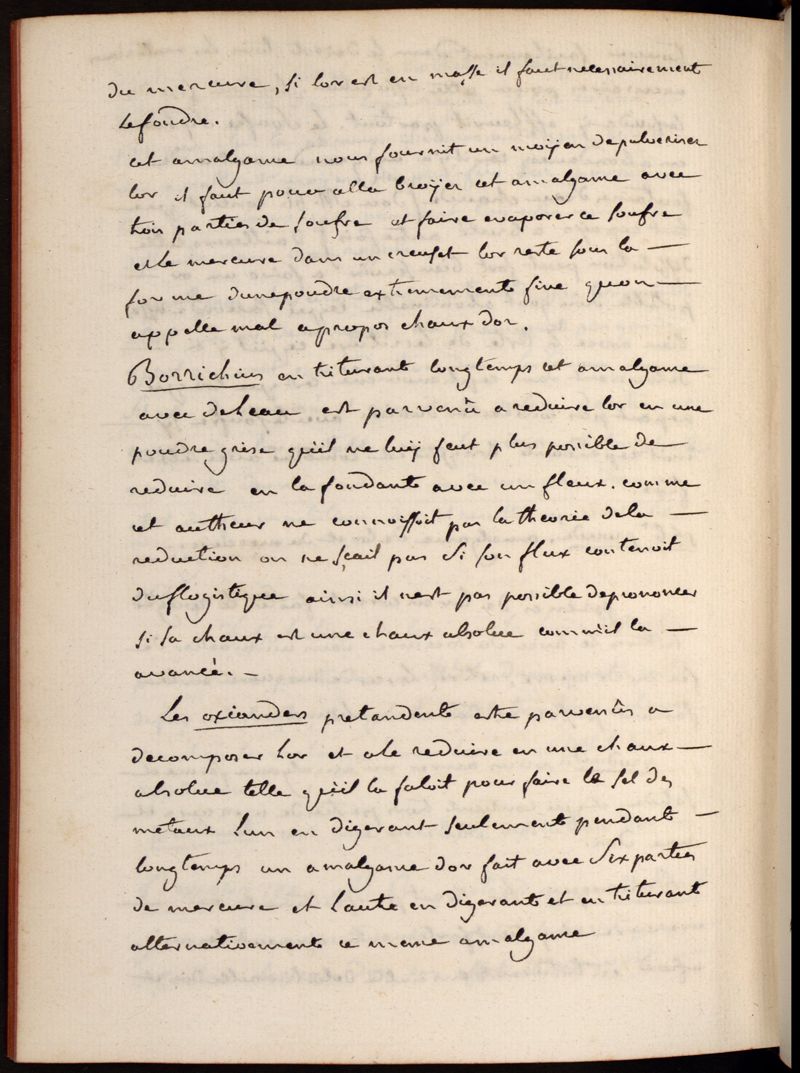 du mercure, si lor est en masse il faut necessairement
le fondre.
cet amalgame nous fournit un moÿen depulveriser
lor il faut pour cella broÿer cet amalgame avec
trois parties de soufre et faire evaporer ce soufre
et le mercure dans un creuset lor reste sous la —
forme dune poudre extremement fine quon —
appelle mal apropos chaux dor.
Borrichius en triturant longtemps cet amalgame
avec deleau est parvenû a reduire lor en une
poudre grise quil ne luÿ feut plus possible de
reduire en la fondant avec un fleux. comme
cet autheur ne connoissoit pas la theorie dela —
reduction on ne sçait pas si son flux contenoit
duflogistique ainsi il nest pas possible deprononcer
si sa chaux est une chaux absolue comme il la —
avancé. —
Les oxianders pretandent estre parvenûs a
decomposer lor et a le reduire en une chaux —
absolue telle quil la faloit pour faire le sel des
metaux lun en digerant seulement pendant —
longtemps un amalgame dor fait avec six parties
de mercure et lautre en digerant et en triturant
alternativement ce meme amalgame